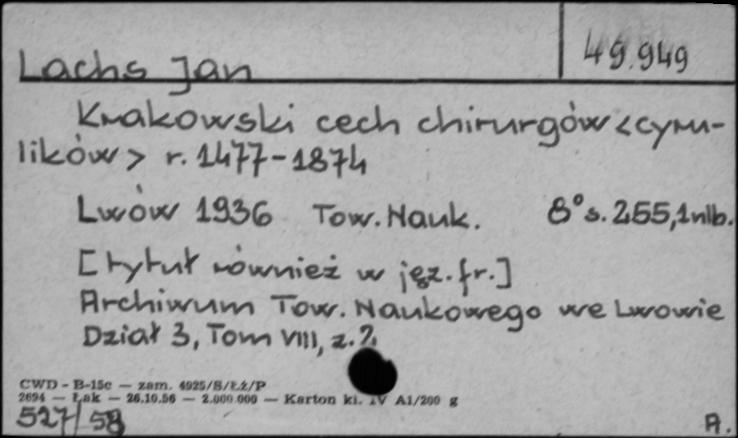 49.949
Lachs Jan
Krakowski cech chirurgów <cyru-
lików> r. 1477-1874
Lwów 1936 Tow. Nauk. 8° s. 255, 1 nlb.
[tytuł również w jęz. fr.]
Archiwum Tow. Naukowego we Lwowie
Dział 3, Tom VIII, z. 2.
CWD - B-15c — zam. 4925/S/Łż/P
2694 — Łak — 26.10.56 — 2.000.000 — Karton kl. IV A1/200 g
527/58 A.